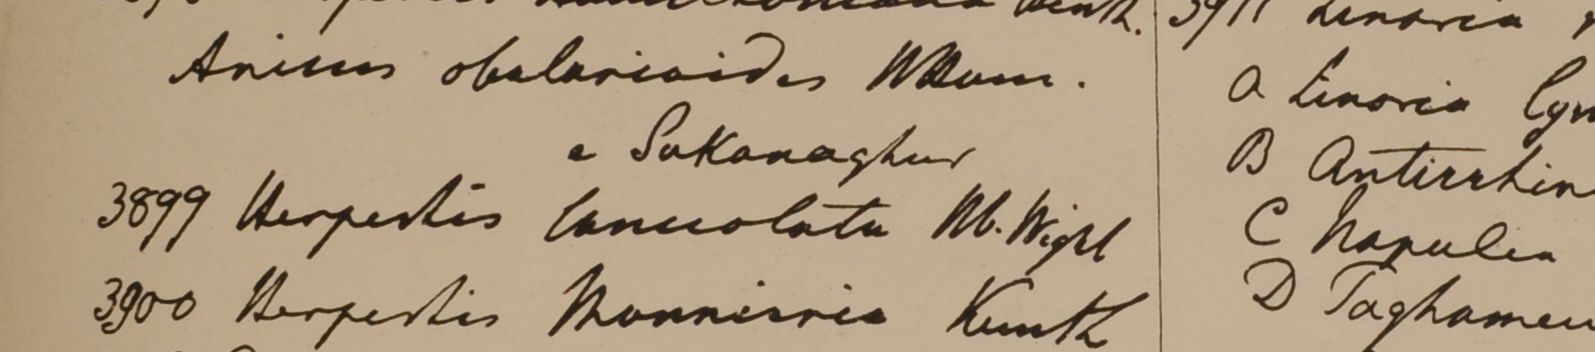 Benth.
Anicus obularioides Wall
e Sukanaghur
3899 Herpestis lanceolata Hb. Wight
3900 Herpestis Monnieria Kunth
3911 Linaria
A Linaria Cym
B Antirrhin
C Napulia
D Taghamen